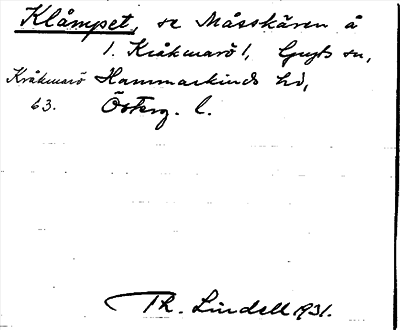 Klåmpet, se Måsskären å
1. Kråkmarö 1, Gryts sn,
Kråkmarö Hammarkinds hd,
63. Österg. l.
Th. Lindell 1931.